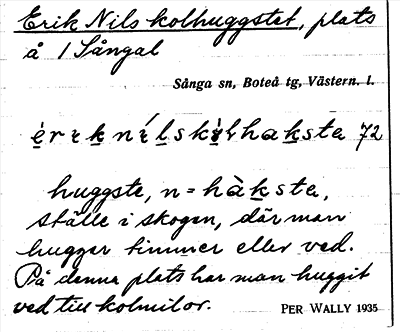 Erik Nils kolhuggstet, plats
å / Sångal
Sånga sn, Boteå tg, Västern. l.
72
huggste, n = hàk̲sta,
ställe i skogen, där man
hugger timmer eller ved.
På denna plats har man huggit
ved till kolmilor.
PER WALLY 1935